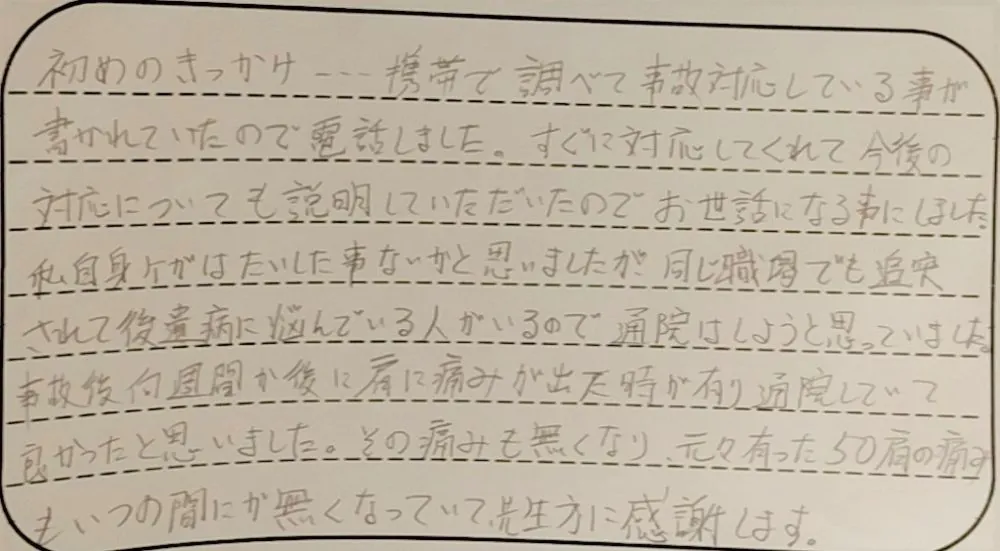 初めのきっかけ----携帯で調べて事故対応している事が
書かれていたので電話しました。すぐに対応してくれて今後の
対応についても説明していただいたのでお世話になる事にしました
私自身ケガはたいした事ないかと思いましたが同じ職場でも追突
されて後遺病に悩んでいる人がいるので通院はしようと思っていました。
事故後何週間か後に肩に痛みが出た時が有り通院していて
良かったと思いました。その痛みも無くなり、元々有った50肩の痛み
もいつの間にか無くなっていて、先生方に感謝します。